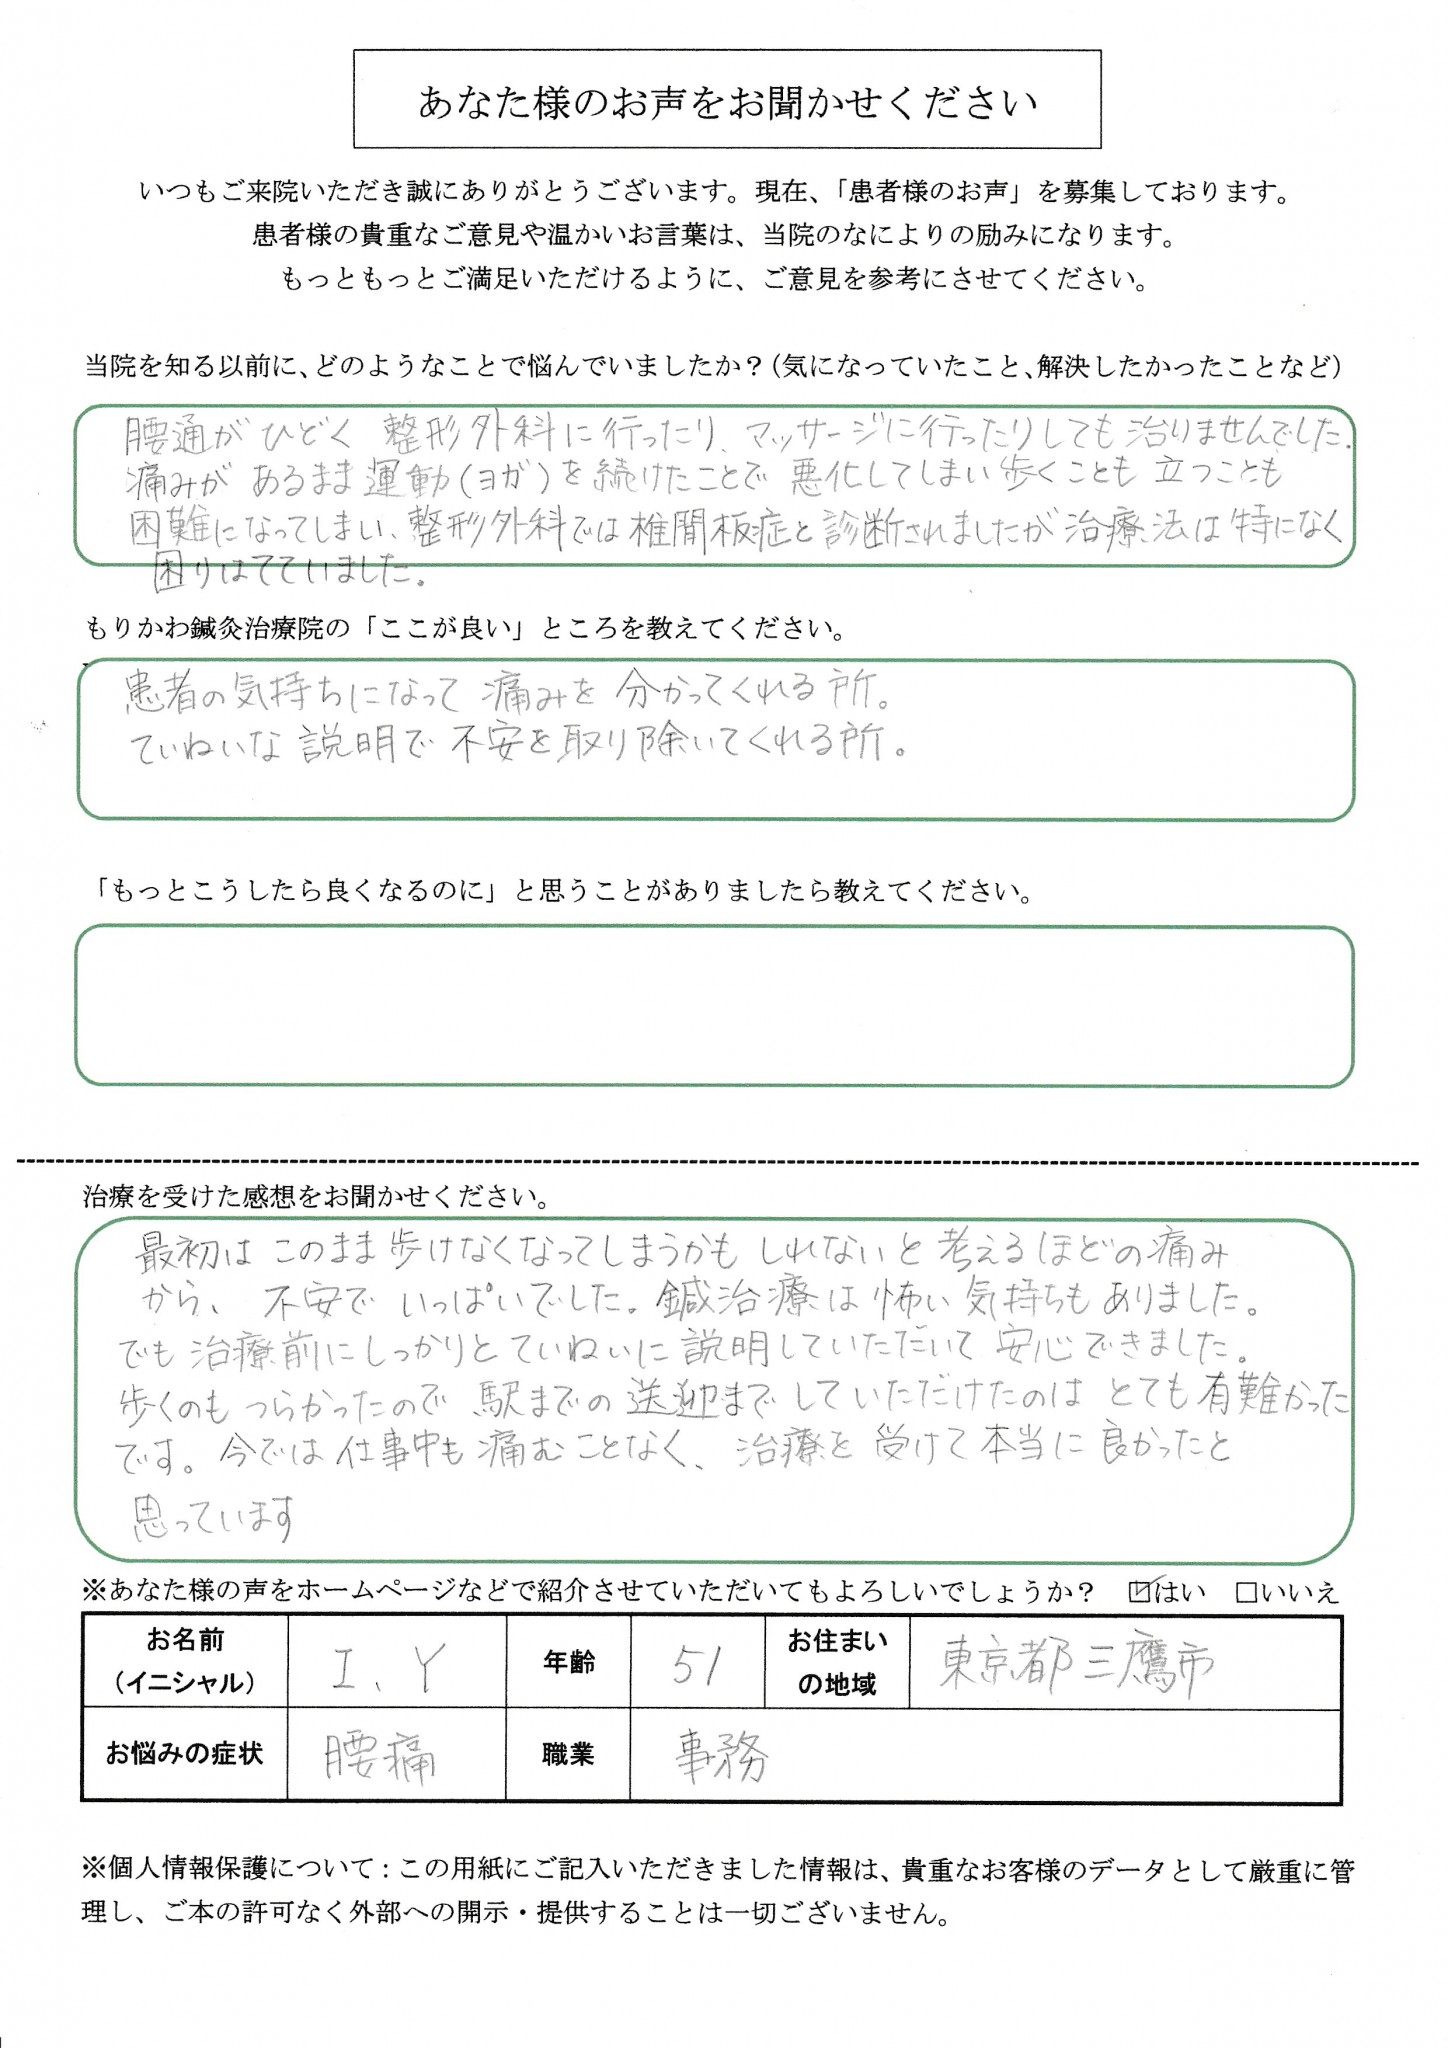 あなた様のお声をお聞かせください
いつもご来院いただき誠にありがとうございます。現在、「患者様のお声」を募集しております。
患者様の貴重なご意見や温かいお言葉は、当院のなによりの励みになります。
もっともっとご満足いただけるように、ご意見を参考にさせてください。
当院を知る以前に、どのようなことで悩んでいましたか？（気になっていたこと、解決したかったことなど）
腰通がひどく 整形外科に行ったり、マッサージに行ったりしても治りませんでした。
痛みが あるまま運動（ヨガ）を続けたことで 悪化してしまい歩くことも 立つことも
困難になってしまい、整形外科では椎間板症と診断されましたが治療法は特になく
困りはてていました。
もりかわ鍼灸治療院の「ここが良い」ところを教えてください。
患者の気持ちになって 痛みを 分かってくれる所。
ていねいな 説明で 不安を取り除いてくれる所。
「もっとこうしたら良くなるのに」と思うことがありましたら教えてください。
治療を受けた感想をお聞かせください。
最初は このまま歩けなくなってしまうかも しれないと 考えるほどの痛み
から、不安で いっぱいでした。鍼治療は怖い 気持ちもありました。
でも治療前にしっかりとていねいに説明していただいて 安心できました。
歩くのも つらかったので 駅までの送迎までしていただけたのは とても有難かった
です。今では仕事中も痛むことなく、治療を受けて本当に良かったと
思っています
※あなた様の声をホームページなどで紹介させていただいてもよろしいでしょうか？ ☑はい □いいえ
お名前（イニシャル） I、Y 年齢 51 お住まいの地域 東京都三鷹市
お悩みの症状 腰痛 職業 事務
※個人情報保護について：この用紙にご記入いただきました情報は、貴重なお客様のデータとして厳重に管
理し、ご本の許可なく外部への開示・提供することは一切ございません。